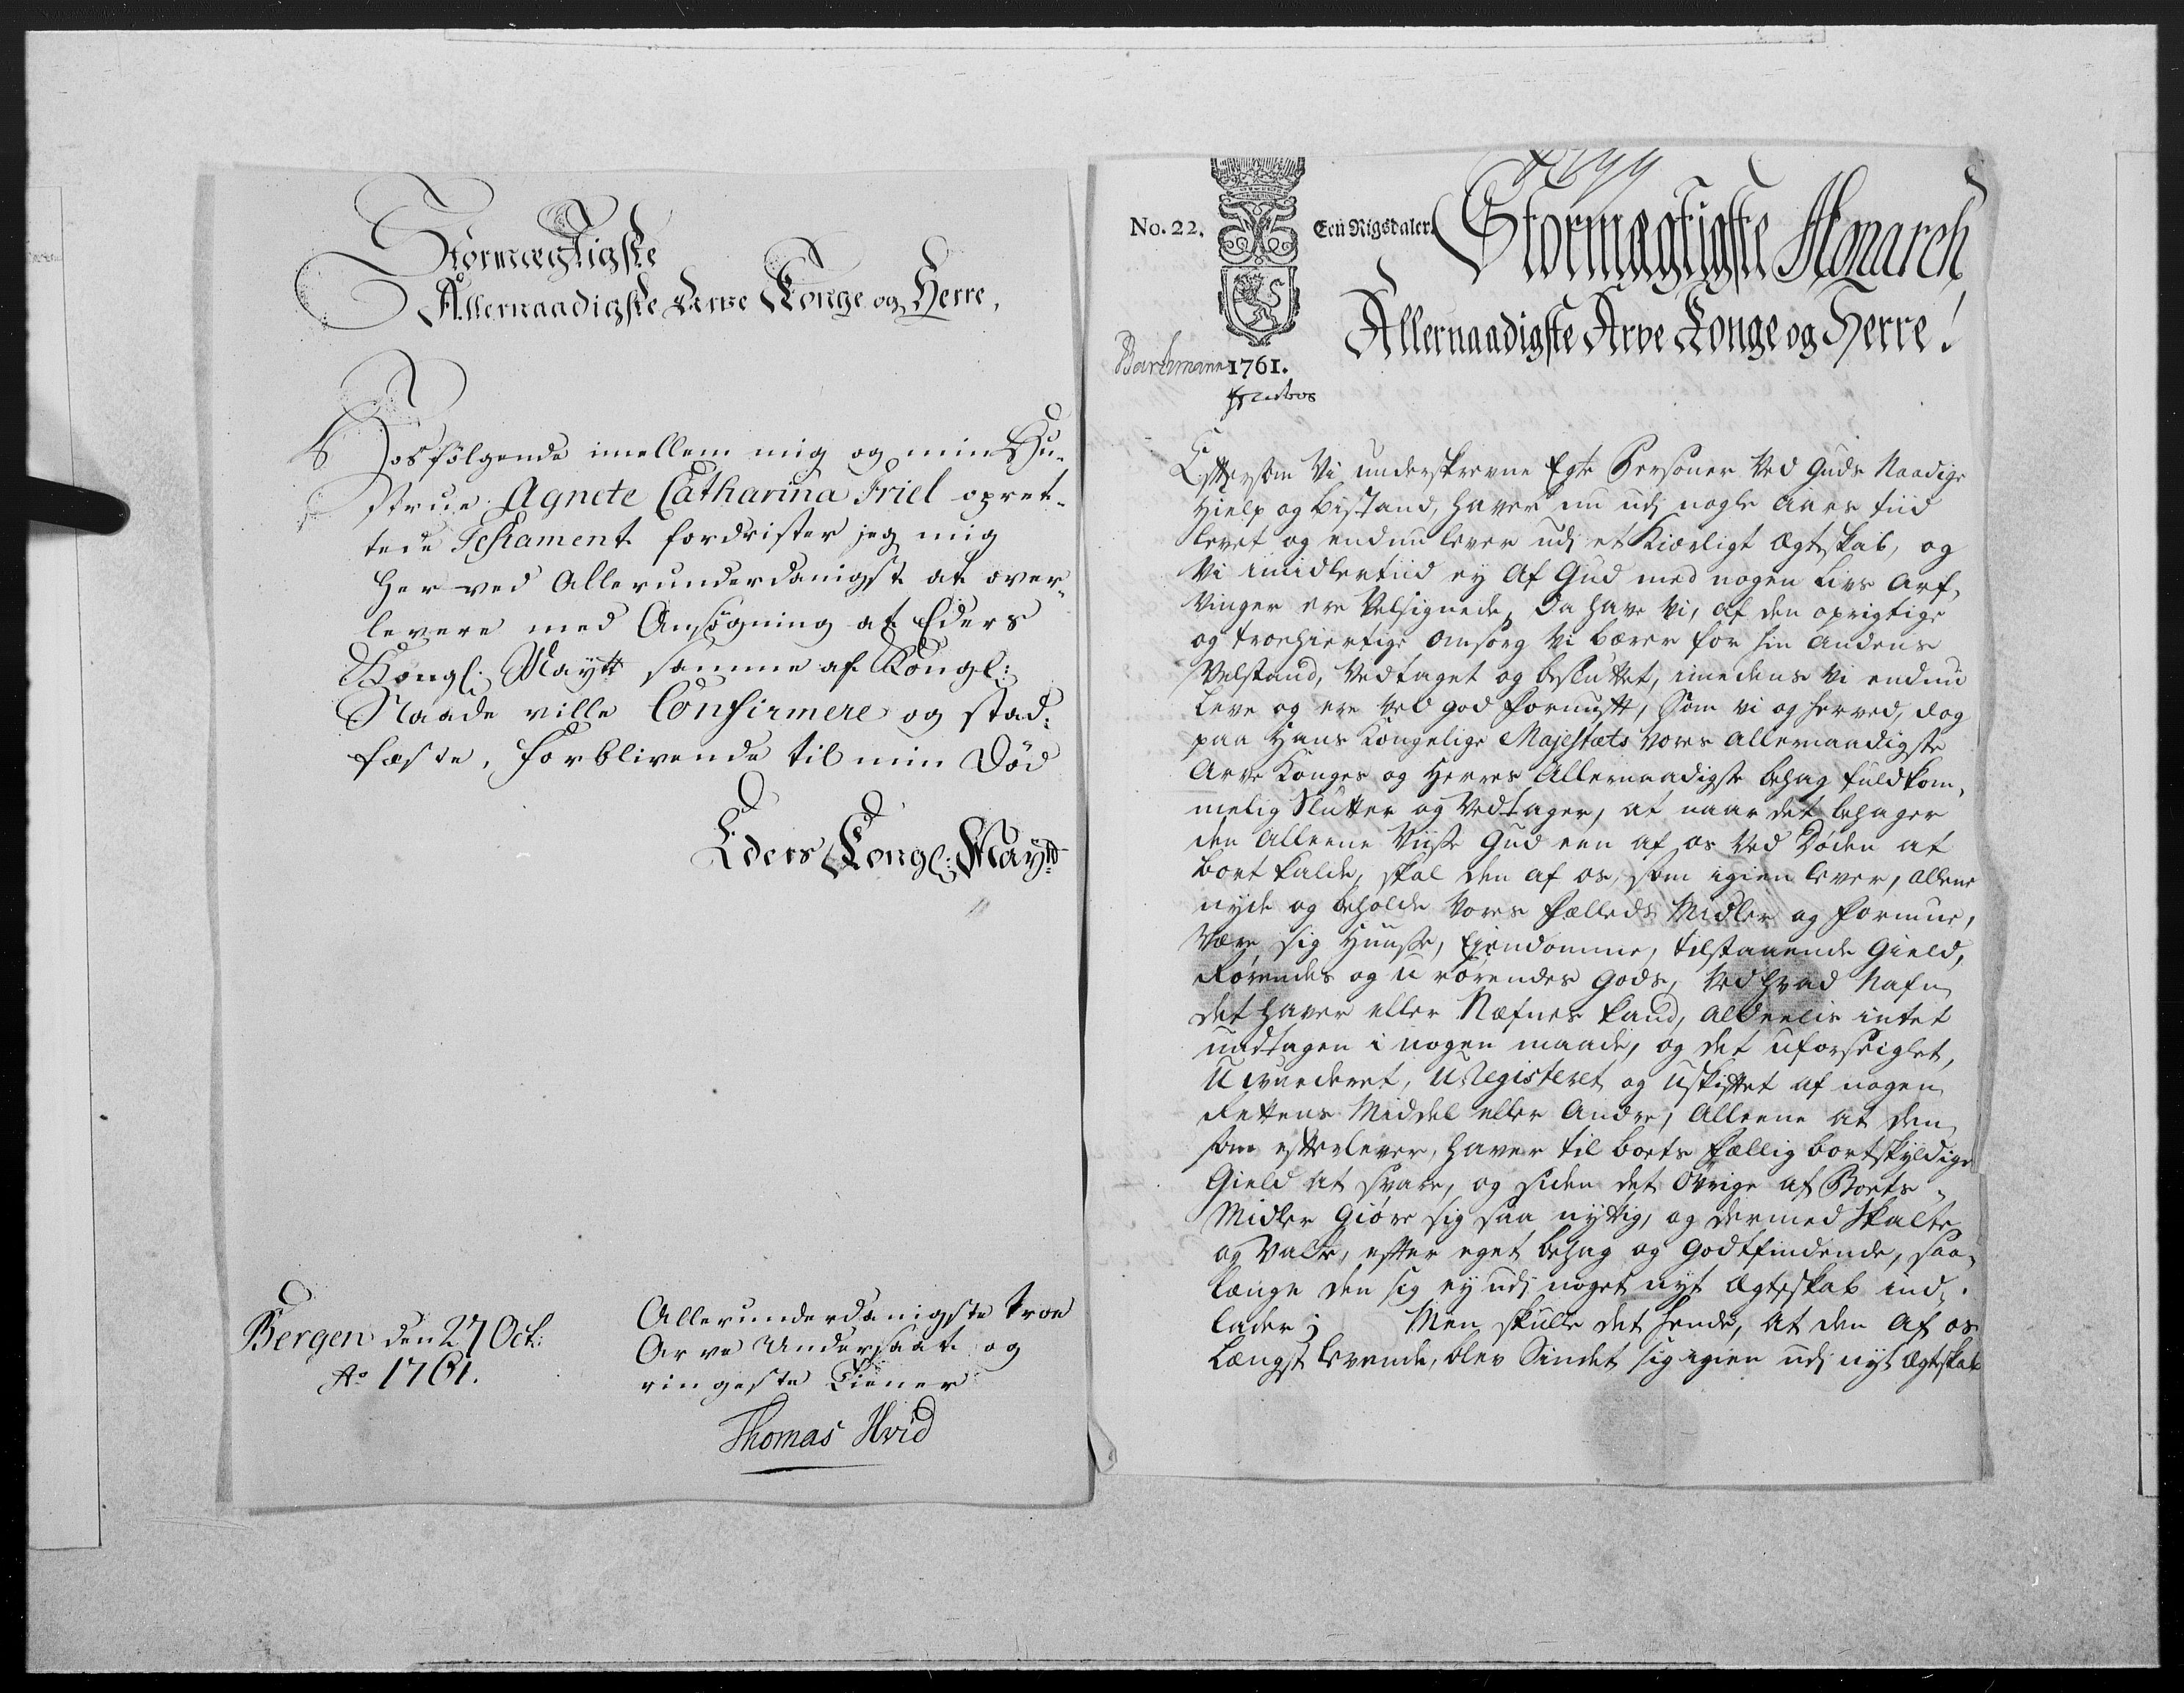 Stormægtigste
Allernaadigste Arve Konge og Herre,
Hosfølgende imellem mig og min Hu-
strue Agnete Catharina Friel opret-
tede Testament fordrister jeg mig
her ved Allerunderdanigst at over-
levere med Ansøgning at Eders
Kongl: Maytt samme af Kongl:
Naade ville Confirmere og stad-
fæste, forblivende til min Død
Eders Kongl: Maytts
Bergen den 27 Oct:
Ao 1761.
Allerunderdanigste troe
Arve Undersaat og
ringeste Tiener
Thomas Hvid
No. 22.
Een Rigsdaler.
1761.
Stormægtigste Monarch
Allernaadigste Arve Konge og Herre!
Eftersom Vi underskrevne Egte Personer Ved Guds Naadige
Hielp og bistand, haver nu udj nogle Aars tiid
levet og endnu lever udj et Kiærligt Ægteskab, og
Vi imidlertiid ey Af Gud med nogen Livs Arf-
vinger ere Velsignede, Da have Vi, af den oprigtige
og troehiertige Omsorg Vi bærer for hin Andens
Velstand, Vedtaget og besluttet, imedens Vi endnu
leve og ere Ved god fornuft, Som vi og herved, dog
paa Hans Kongelige Majestæts Vores Allernaadigste
Arve Konges og Herres Allernaadigste behag fuldkom-
melig Slutter og Vedtager, at naar det behager
den Alleene Viise Gud een af os Ved Døden at
bortkalde, skal den af os, som igien lever, allene
nyde og beholde Vores fælleds Midler og formue,
Være sig Huuse, Eyendomme, tilstaaende Gield,
Rørendes og Urørendes Gods, Ved hvad Nafn
det haver eller Næfnes kand, aldeelis intet
undtagen i nogen maade, og det uforseiglet,
Uvurderet, URegisteret og Uskiftet af nogen
Rettens Middel eller Andre, Alleene at den
som efterlever, haver til boets fællig bortskyldige
Gield at svare, og siden det Øvrige af Boets
Midler Giøre sig saa nyttig, og dermed skalte
og Valte, efter eget behag og Godtfindende, saa
længe den sig ey udj noget nyt Ægteskab ind-
lader; Men skulle det hende, at den Af os
Længst levende, blev Sindet sig igien udj nyt Ægteskab